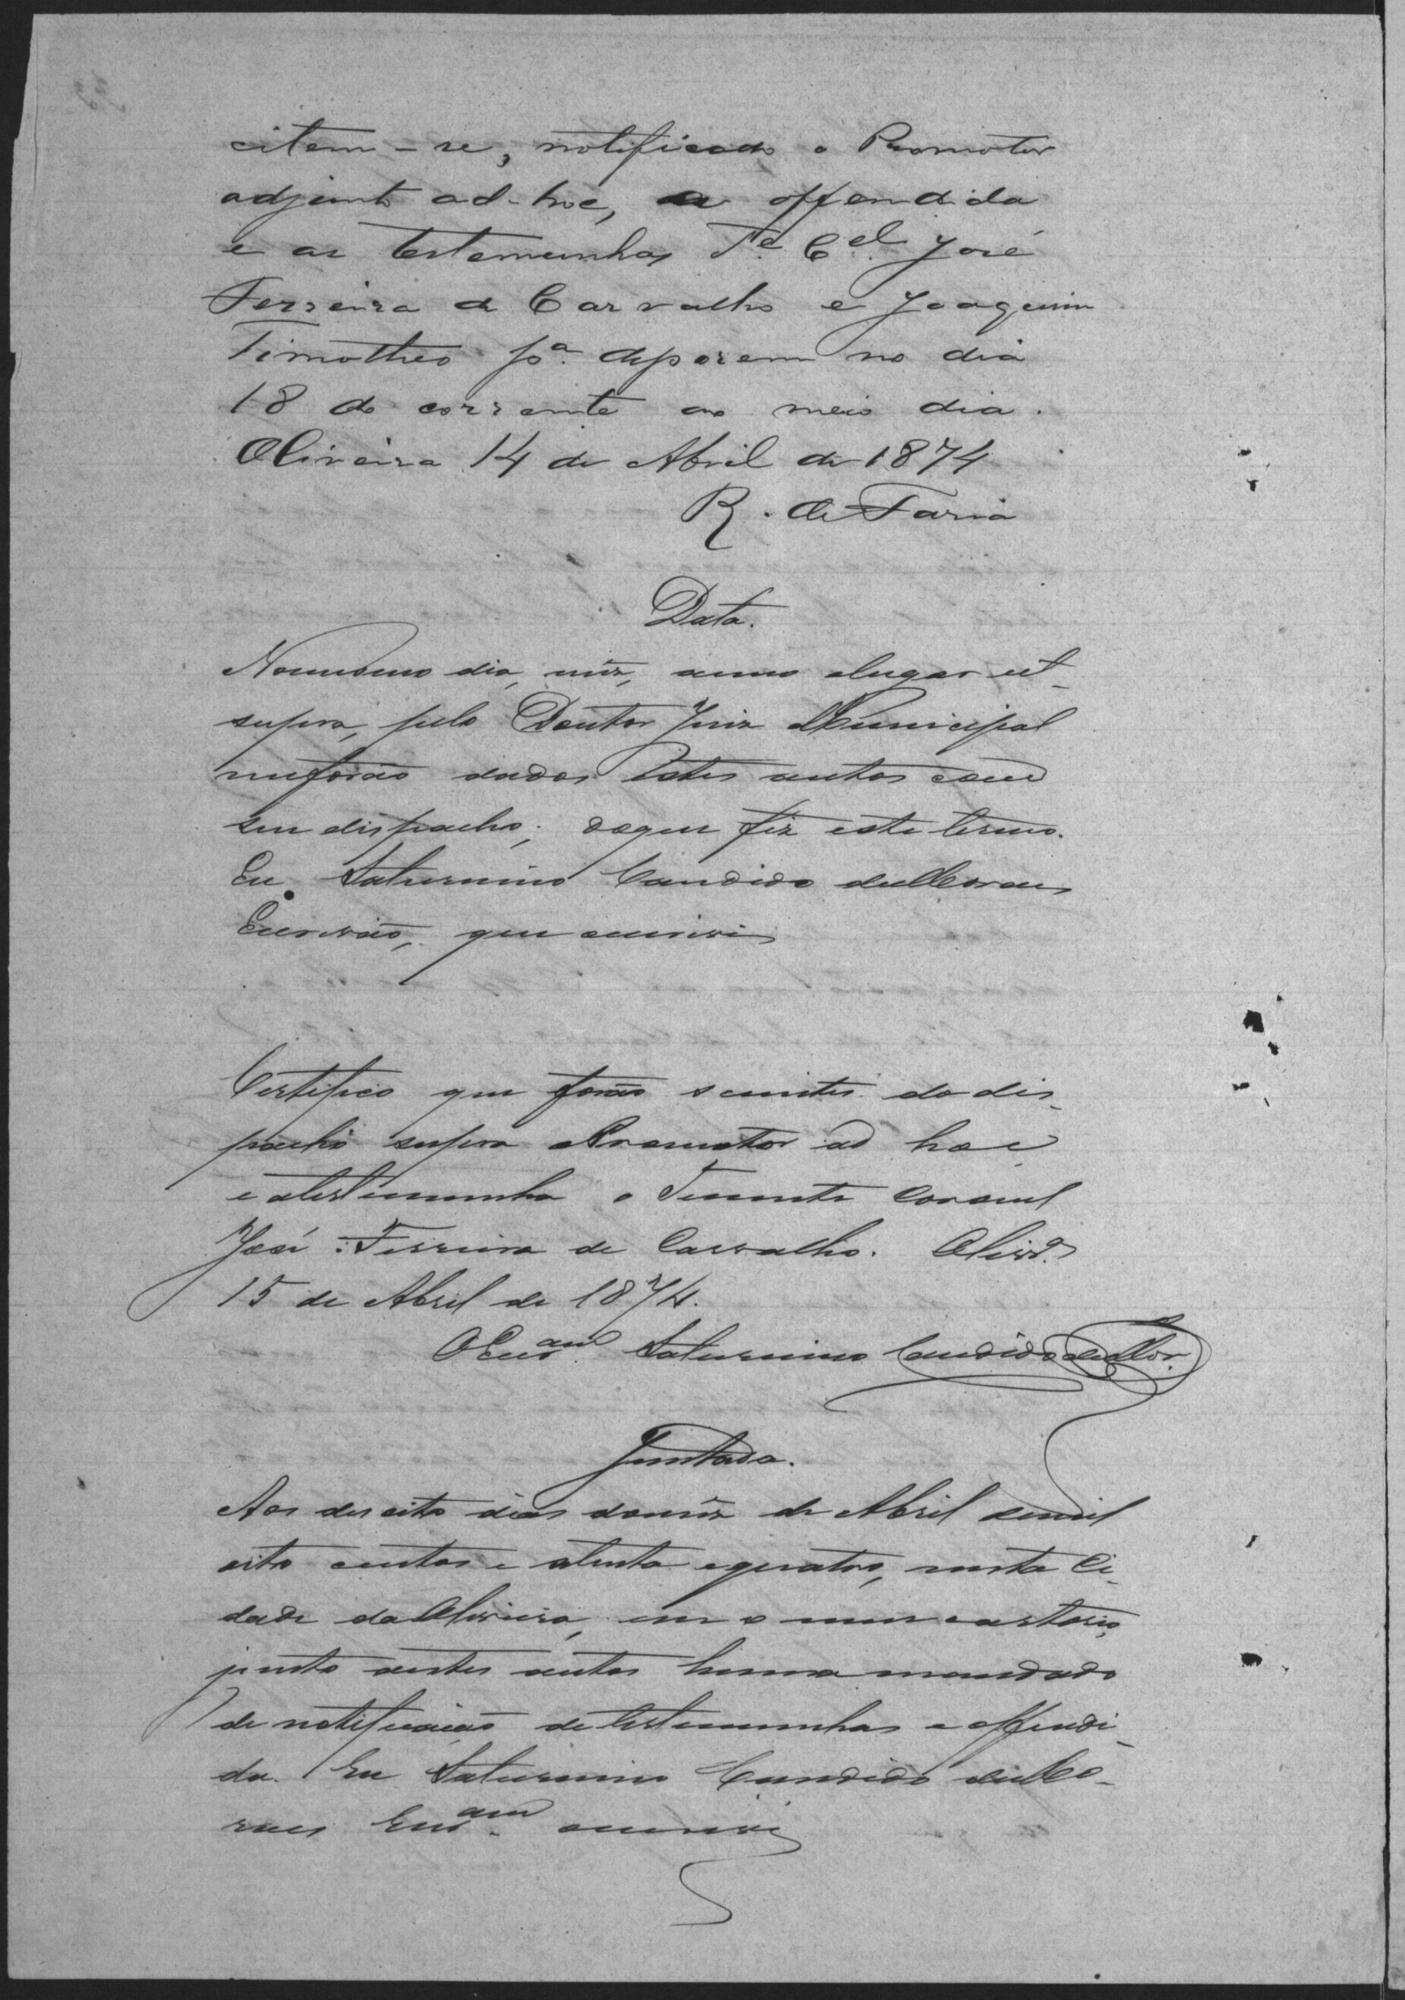 citem-se, notificado o Promotor
adjunto ad-hoc, a offendida
e as testemunhas Te. Cel. José
Ferreira de Carvalho e Joaquim
Timotheo pa. deporem no dia
18 do corrente ao meio dia.
Oliveira 14 de Abril de 1874
R. de Faria
Data.
No mesmo dia, mez, anno elugar ut-
supra, pelo Doutor Juiz Municipal
me forão dados estes autos com
seu dispacho; doque fiz este termo.
Eu Saturnino Candido de Moraes
Escrivão, que escrivi
Certifico que forão scientes do dis-
pacho supra o Promotor ad hoc
e a testemunha o Tenente Coronel
José Ferreira de Carvalho. Olivra.
15 de Abril de 1874.
O Escram. Saturnino Candido de Mor.
Juntada.
Aos desoito dias domez de Abril demil
oito centos e setenta equatro, nesta Ci-
dade da Oliveira, em o meu cartorio,
junto aestes autos hum mandado
de notificação de testemunhas e offendi-
da. Eu Saturnino Candido de Mo-
raes Escram. escrivi